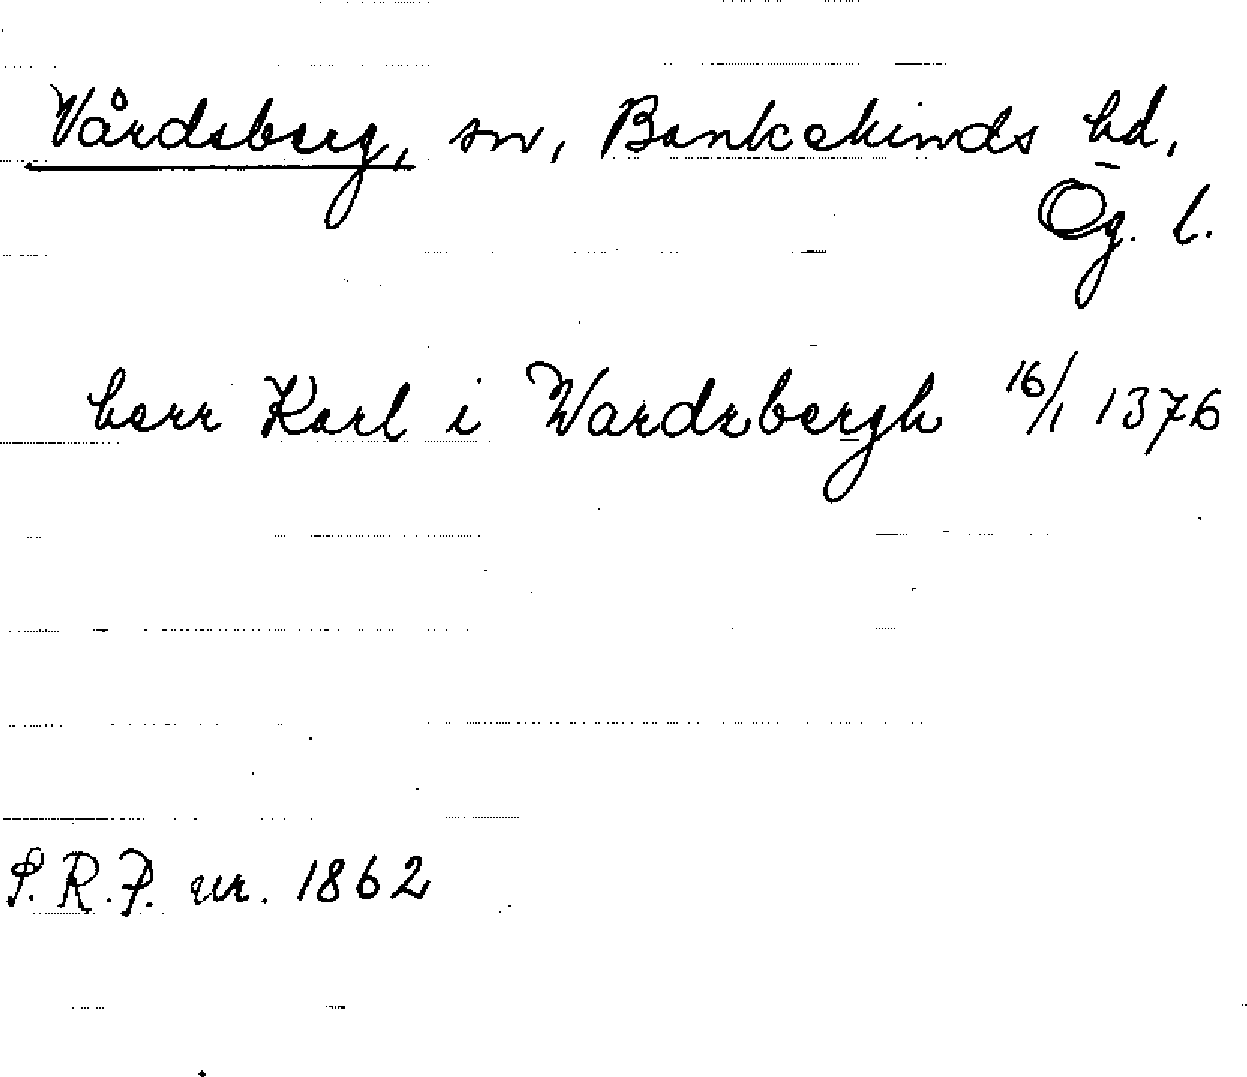 Vårdsberg, sn, Bankekinds hd,
Ög. l.
herr Karl i Wardzbergh 16/1 1376
S.R.P. nr. 1862